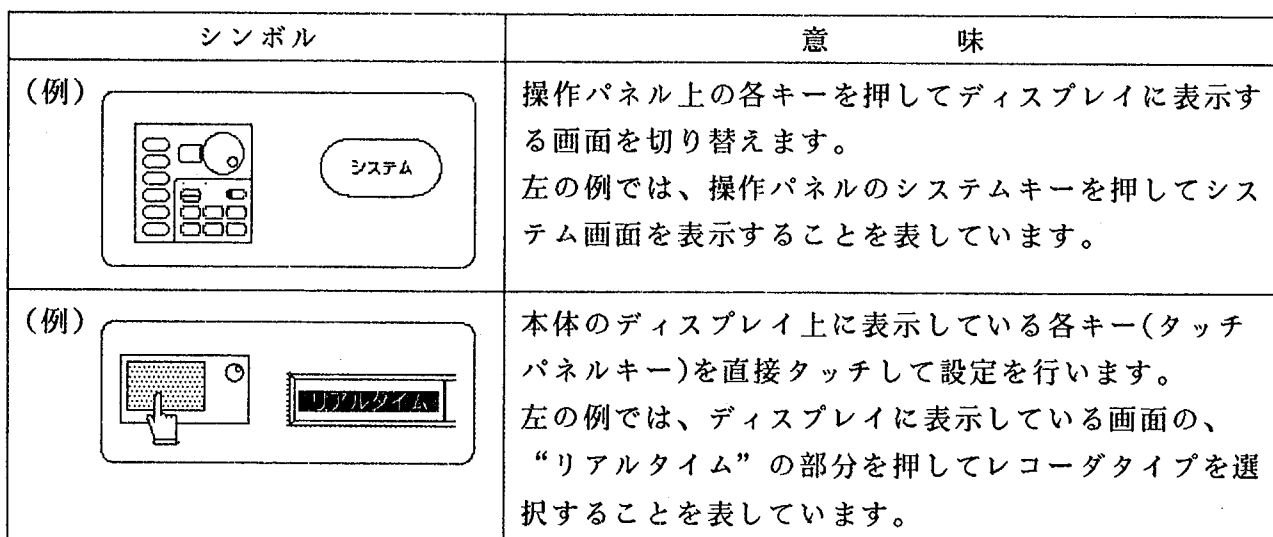 シンボル
意 味
(例)
システム
操作パネル上の各キーを押してディスプレイに表示す
る画面を切り替えます。
左の例では、操作パネルのシステムキーを押してシス
テム画面を表示することを表しています。
(例)
リアルタイム
本体のディスプレイ上に表示している各キー(タッチ
パネルキー)を直接タッチして設定を行います。
左の例では、ディスプレイに表示している画面の、
“リアルタイム”の部分を押してレコーダタイプを選
択することを表しています。